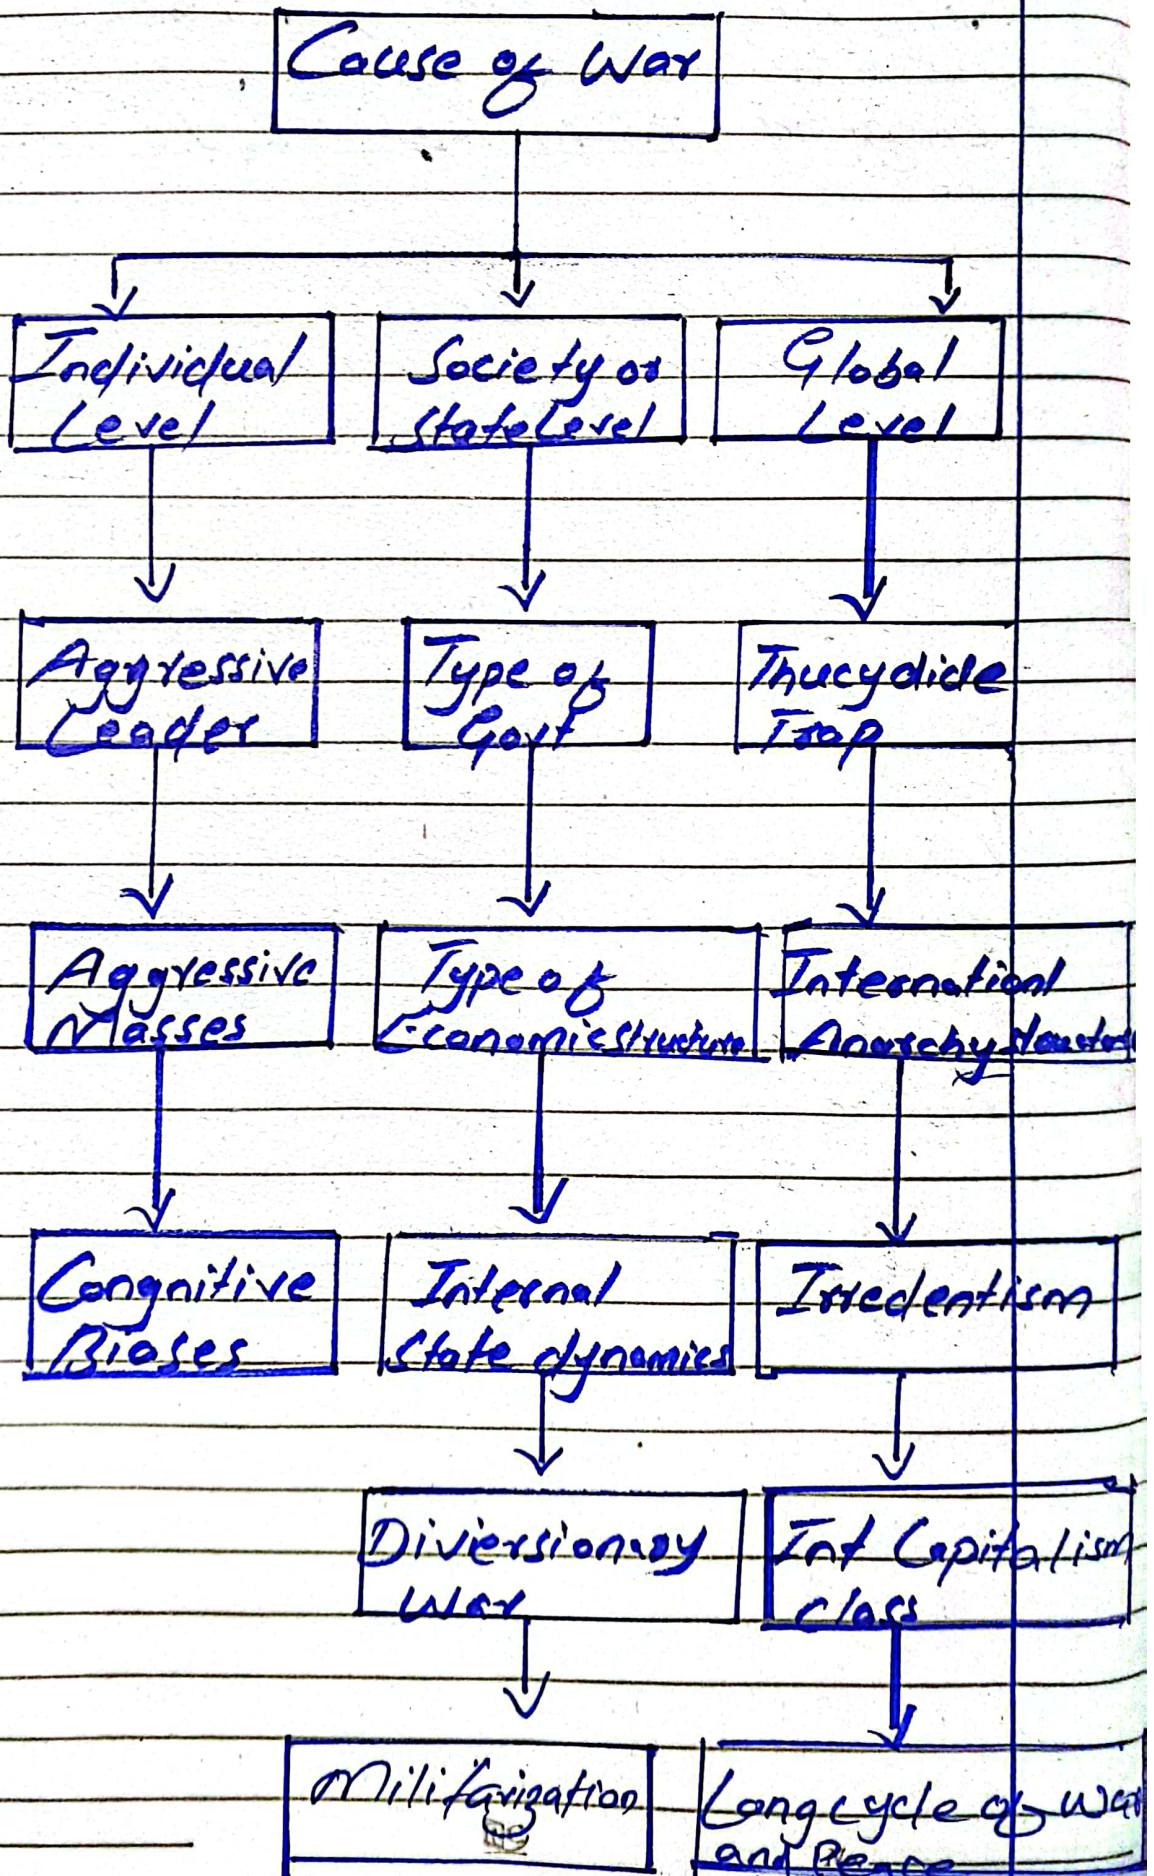 Cause of War
Individual
Level
Society or
State Level
Global
Level
Aggressive
Leader
Type of
Govt
Thucydide
Trap
Aggressive
Masses
Type of
Economic structure
Internationl
Anarchy
Congnitive
Biases
Internal
State dynamics
Irredentism
Diversionary
War
Int Capitalism
class
Militarization
Long cycle of War
and Peace